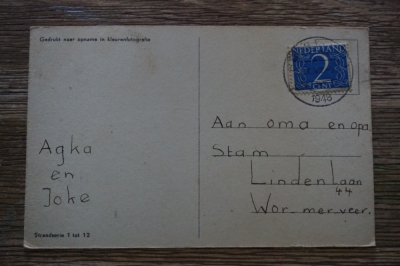 Gedrukt naar opname in kleurenfotografie
NEDERLAND
2
CENT
1948
Aan oma en opa
Stam
Lindenlaan
44
Wormerveer.
Agka
en
Joke
Strandserie 1 tot 12